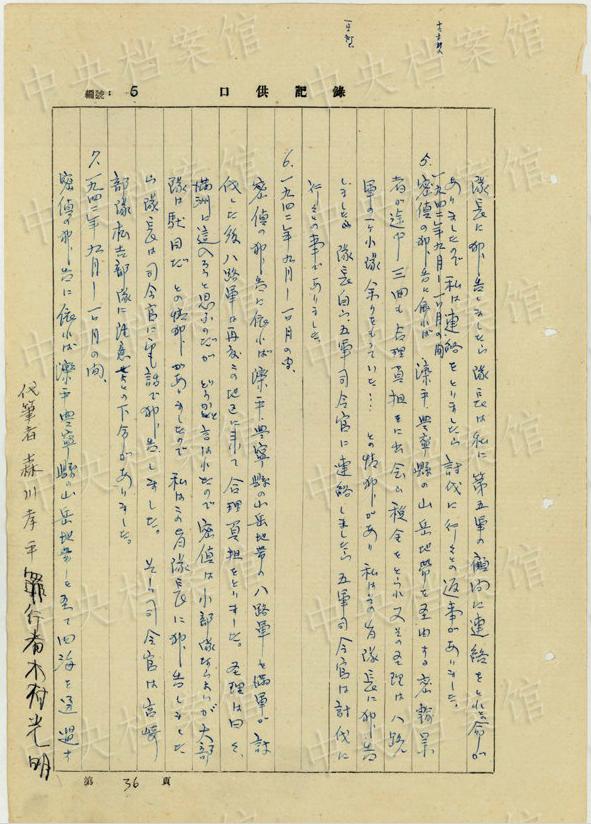 編號：5
口供記錄
隊長に報告しましたら隊長は私に第五軍の顧問に連絡をとれと命が
ありましたので私は連絡をとりましたら討伐に行くとの返事がありました。
5.一九四二年九月—一ヶ月の間
密偵の報告に依れば、灤平、豊寧縣の山岳地帶を至由する密輸業
者が途中三回も合理負担に出会ひ税金をとられ又その至理は八路
軍の一ヶ小隊余りをもっていた…との情報があり私はその旨隊長に報告
しましたら隊長自ら五軍司令官に連絡しましたら五軍司令官は討伐に
行くとの事でありました。
6.一九四二年九月—一ヶ月の間、
密偵の報告に依れば灤平、豊寧縣の山岳地帶の八路軍を満軍が討
伐した後八路軍は再度この地区に来て合理負担をとりました。至理は曰く、
満洲に這入ろうと思ふのだがどうかと言はれたので密偵は小部隊ならよいが大部
隊は駄目だとの情報がありましたので私はこの旨隊長に報告しました
山隊長は司令官に電話で報告しました。そしたら司令官は宮崎
部隊、広吉部隊に注意せよとの下令がありました。
7.一九四二年九月—一ヶ月の間、
密偵の報告に依れば灤平、豊寧縣の山岳地帶を至て四海を通過す
代筆者 森川孝平 罪行者 木村光明
第 36 頁
中央档案馆